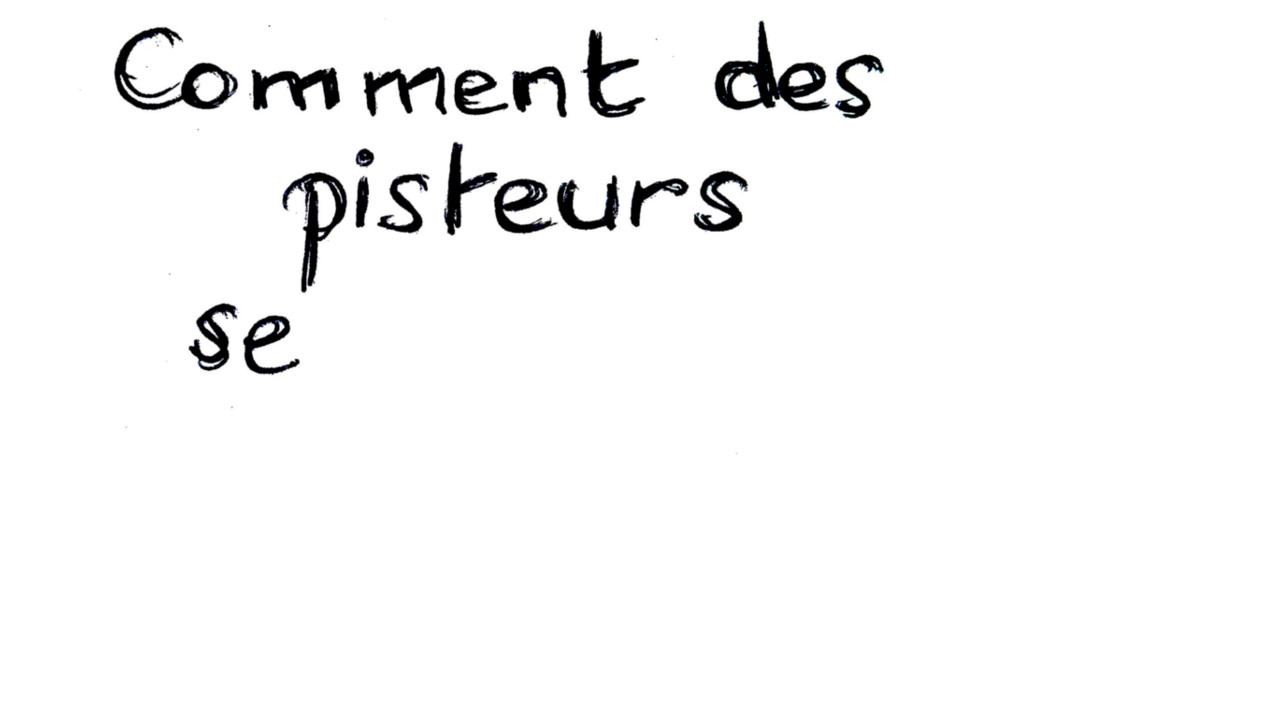 Comment des
pisteurs
se